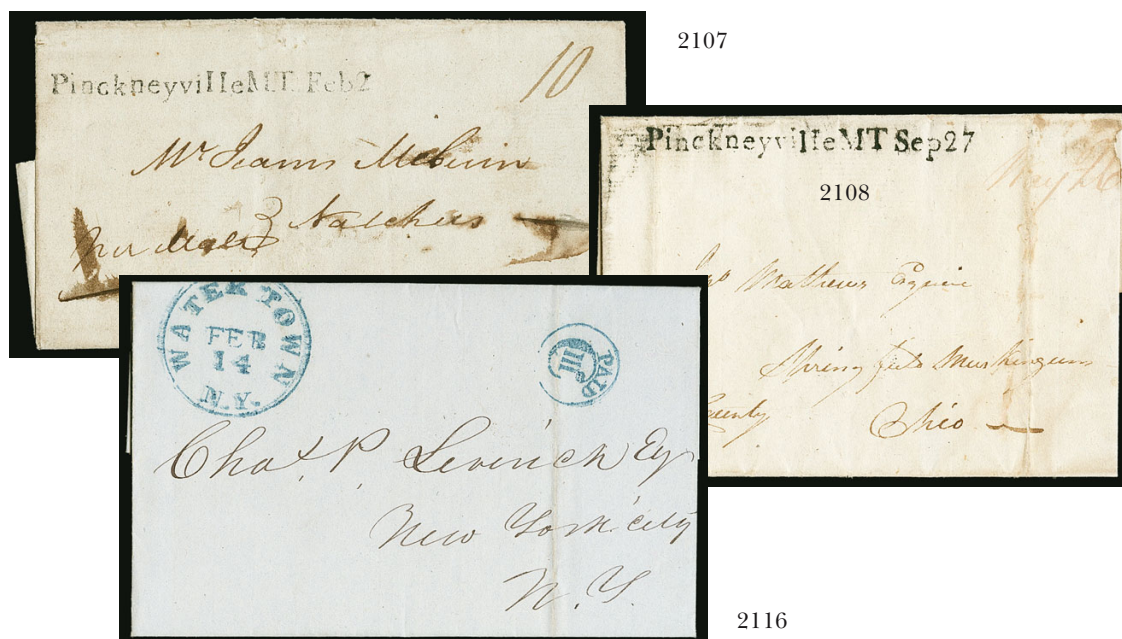 2107
PinckneyvilleMT. Feb2
10
Mr
Natchus
2108
PinckneyvilleMT Sep27
Mathews Esquire
Springfield Muskingum
County
Ohio
2116
WATERTOWN
FEB
14
N.Y.
PAID
III
Chas. P. Leverich Esq
New York city
N. Y.